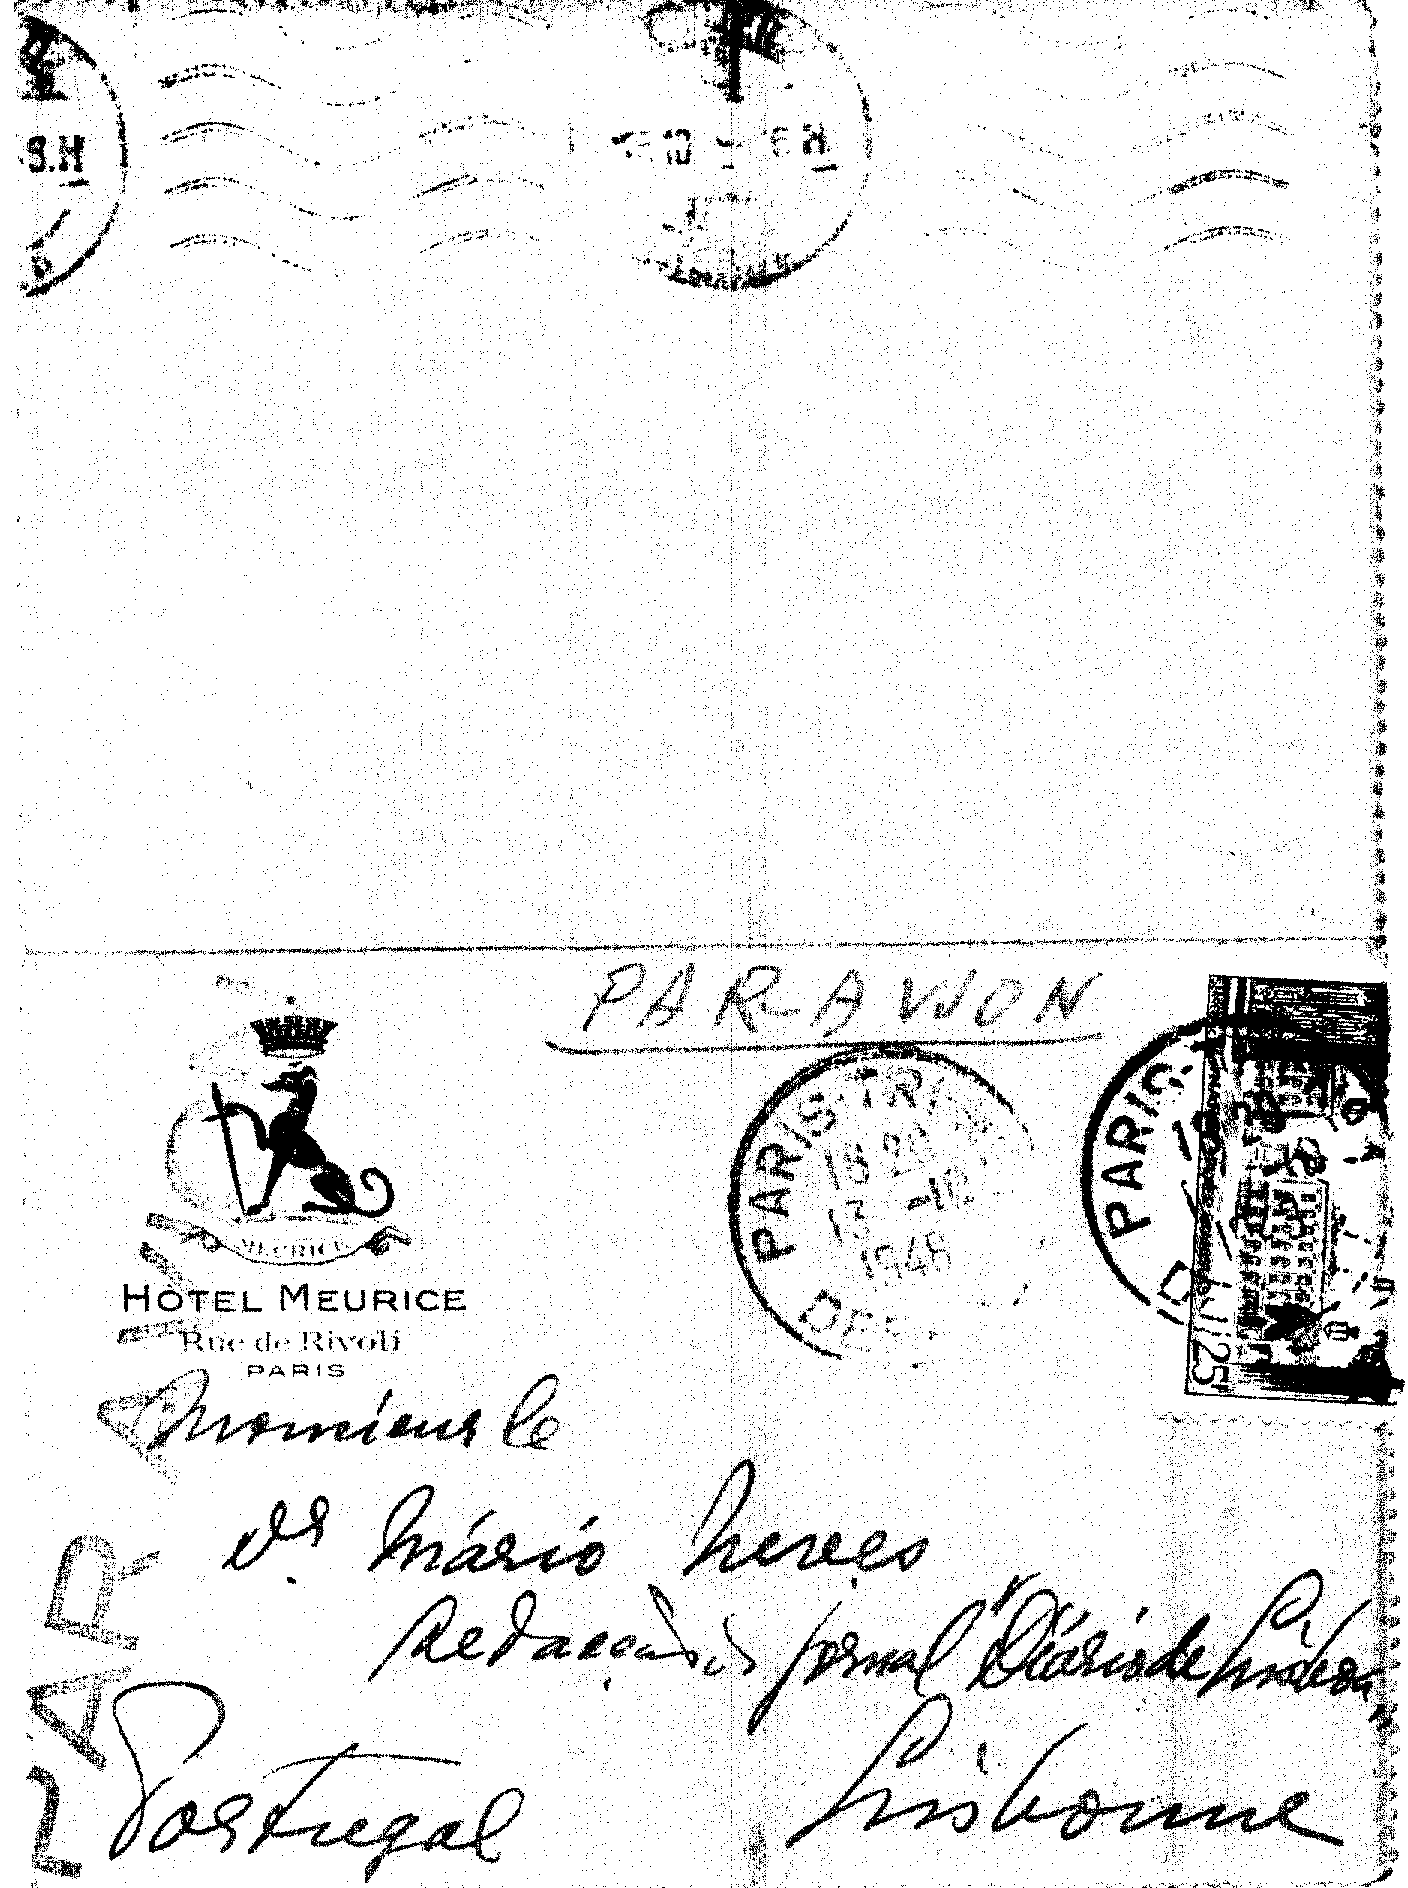 S.H
PAR AVION
PARIS TRI
18 20
13 -10
1948
PARIS
25
MEURICE
HOTEL MEURICE
Rue de Rivoli
PARIS
PAR AVION
Monsieur le
Dr. Mário Neves
Redacção do jornal "Diário de Lisboa"
Lisbonne
Portugal